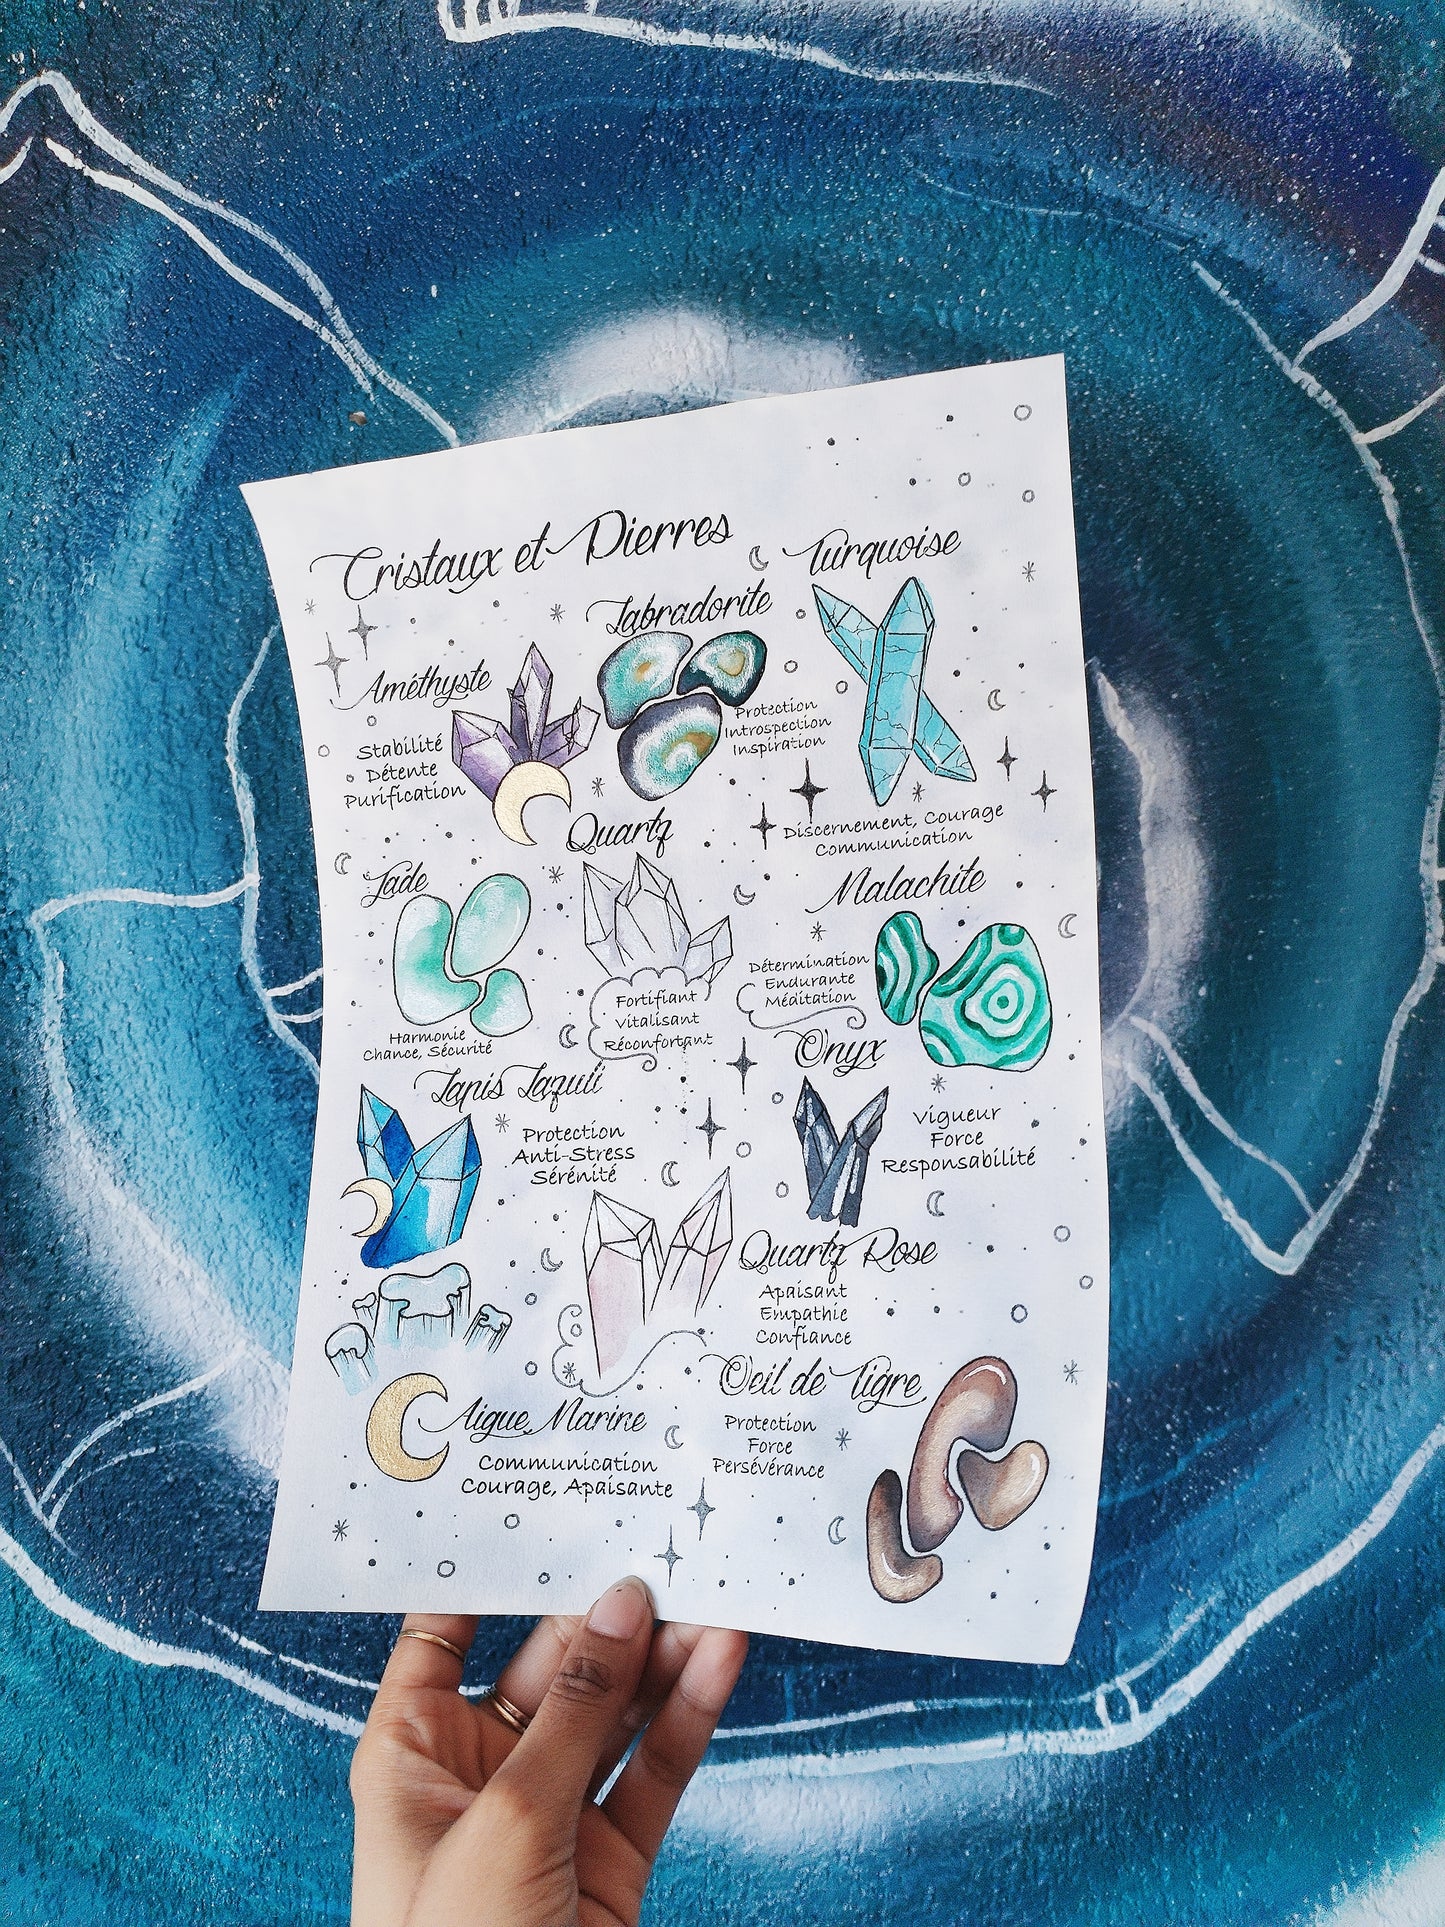 Cristaux et Pierres
Améthyste
Stabilité
Détente
Purification
Labradorite
Protection
Introspection
Inspiration
Turquoise
Discernement, Courage
Communication
Jade
Harmonie
Chance, Sécurité
Quartz
Fortifiant
Vitalisant
Réconfortant
Malachite
Détermination
Endurante
Méditation
Lapis Lazuli
Protection
Anti-Stress
Sérénité
Onyx
Vigueur
Force
Responsabilité
Quartz Rose
Apaisant
Empathie
Confiance
Aigue Marine
Communication
Courage, Apaisante
Oeil de Tigre
Protection
Force
Persévérance